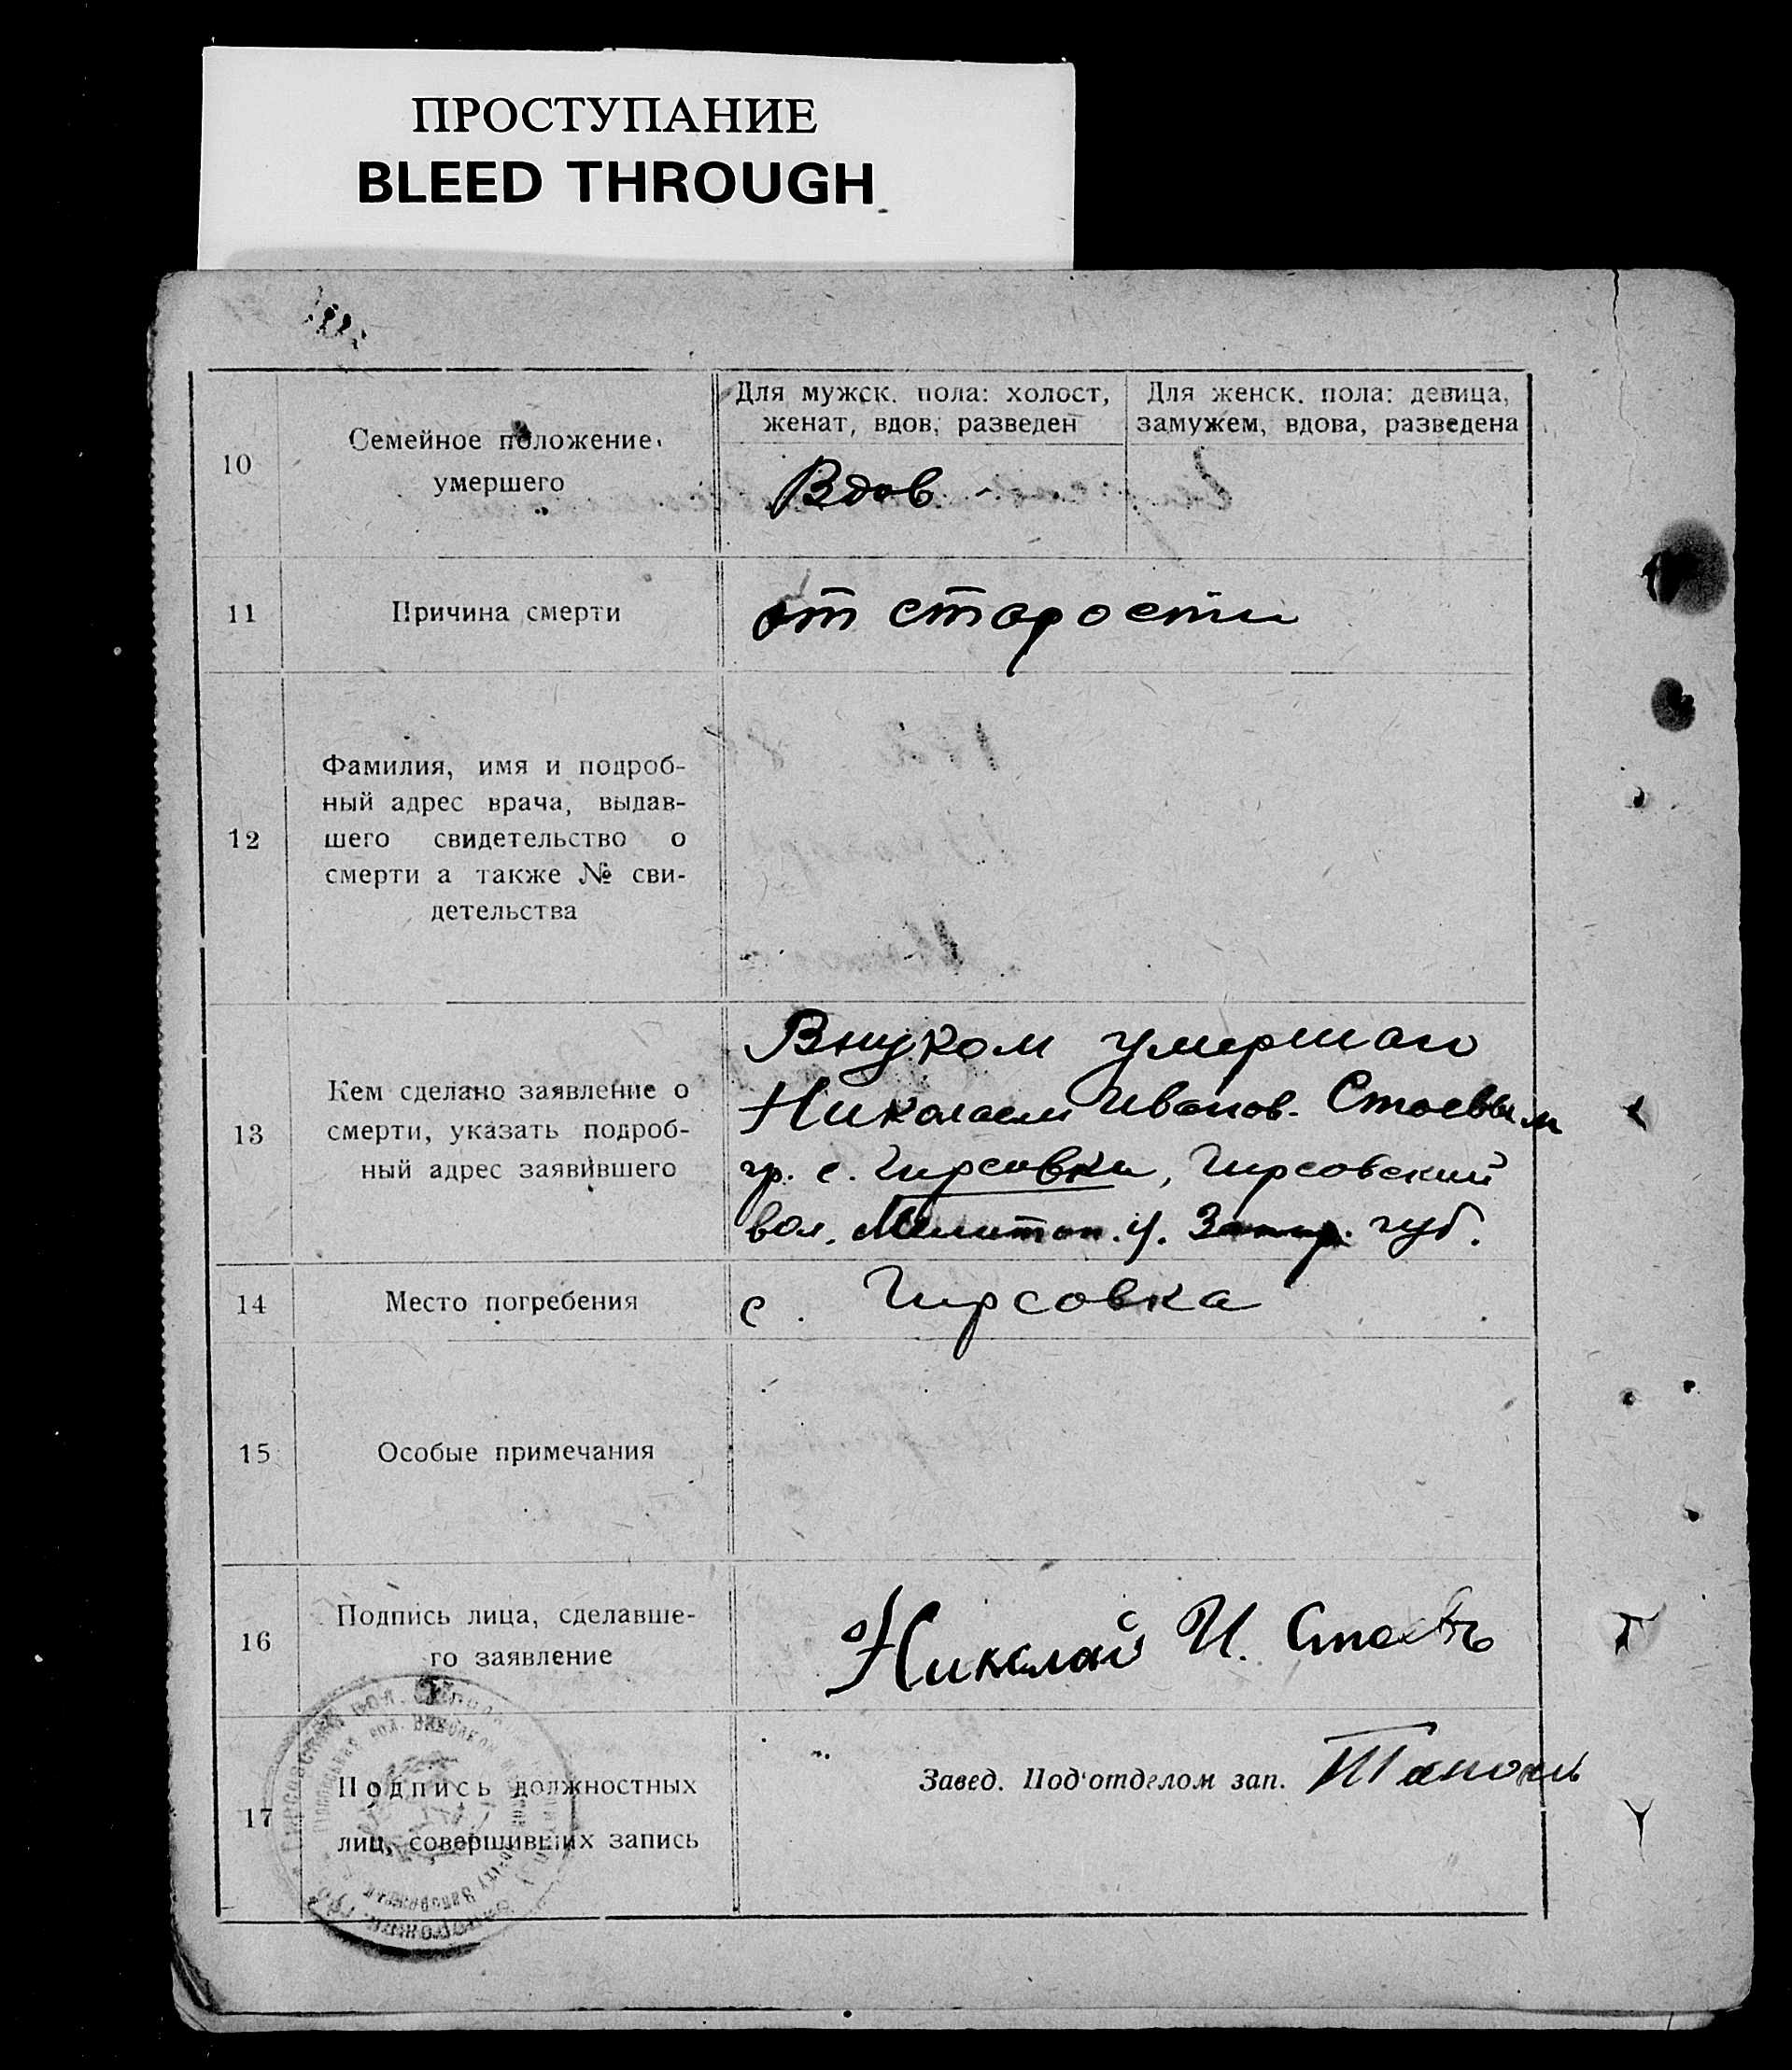 ПРОСТУПАНИЕ
BLEED THROUGH
10
Семейное положение
умершего
Для мужск. пола: холост,
женат, вдов, разведен
Для женск. пола: девица,
замужем, вдова, разведена
Вдов
11
Причина смерти
от старости
12
Фамилия, имя и подроб-
ный адрес врача, выдав-
шего свидетельство о
смерти а также № сви-
детельства
13
Кем сделано заявление о
смерти, указать подроб-
ный адрес заявившего
Внуком умершаго
Николаем Иванов. Стоевым
гр. с. Гирсовки, Гирсовский
вол. Мелитоп. у. Запор. губ.
14
Место погребения
с. Гирсовка
15
Особые примечания
16
Подпись лица, сделавше-
го заявление
Николай И. Стоевъ
17
Подпись должностных
лиц, совершивших запись
Завед. Под'отделом зап.